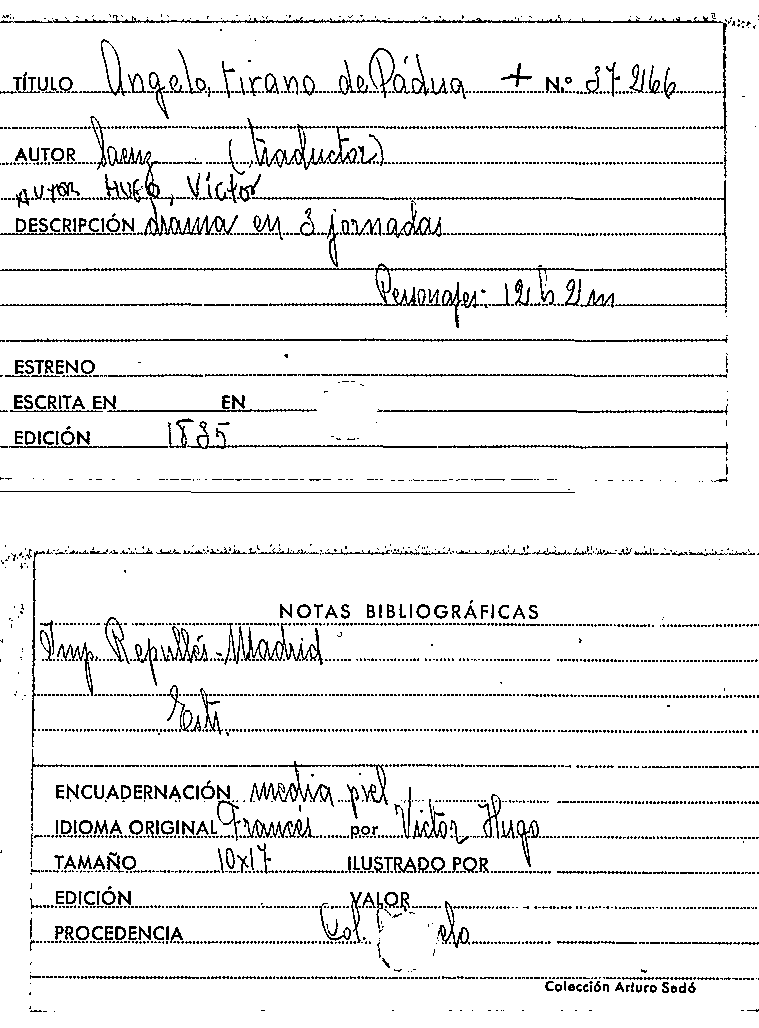 TÍTULO Angelo, tirano de Pádua + N.º 37-2166
AUTOR Saenz (traductor)
AUTOR HUGO, Víctor
DESCRIPCIÓN drama en 3 jornadas
Personajes: 12 h 2 m
ESTRENO
ESCRITA EN EN
EDICIÓN 1835
NOTAS BIBLIOGRÁFICAS
Imp Repullés-Madrid
ENCUADERNACIÓN media piel
IDIOMA ORIGINAL Francés por Victor Hugo
TAMAÑO 10x17 ILUSTRADO POR
EDICIÓN VALOR
PROCEDENCIA Col.
Colección Arturo Sedó